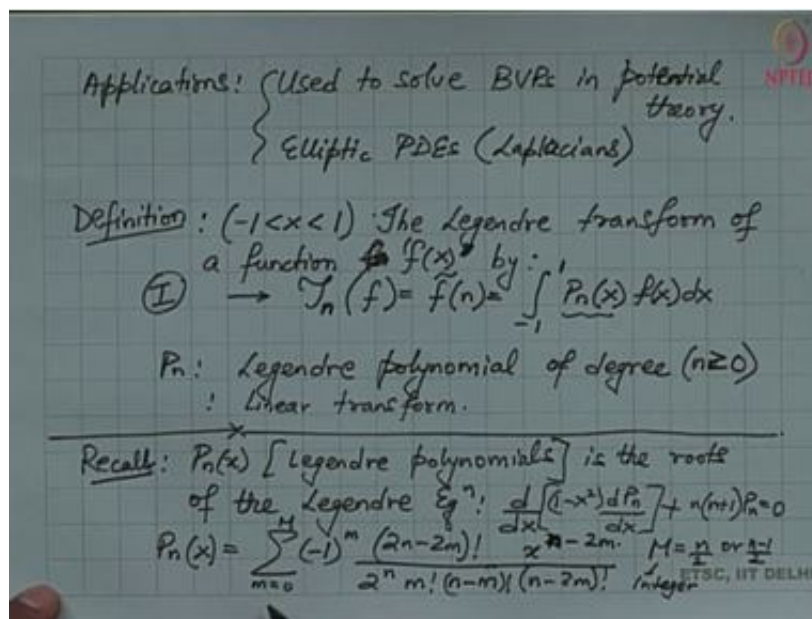 Applications: { Used to solve BVPs in potential
theory.
Elliptic PDEs (Laplacians)
NPTEL
Definition: (-1<x<1) The Legendre transform of
a function 'f(x)' by:
(I) → 𝒯_n(f) = f̃(n) = ∫_{-1}^{1} P_n(x) f(x) dx
P_n: Legendre polynomial of degree (n≥0)
: Linear transform.
Recall: P_n(x) [Legendre polynomials] is the roots
of the Legendre Eqⁿ: d/dx[(1-x²) dP_n/dx] + n(n+1)P_n = 0
P_n(x) = ∑_{m=0}^{M} (-1)^m (2n-2m)! / 2^n m! (n-m)! (n-2m)! x^{n-2m}. M = n/2 or (n-1)/2
integer
ETSC, IIT DELHI